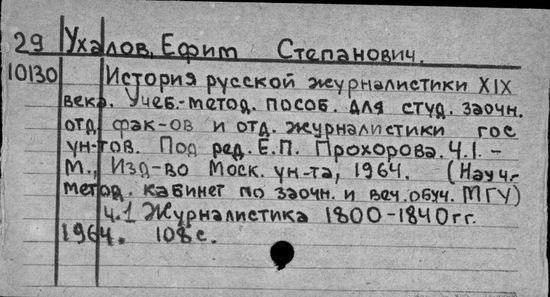 29 Ухалов, Ефим Степанович.
10130 История русской журналистики XIX
века. Учеб.-метод. пособ. для студ. заочн.
отд. фак-ов и отд. журналистики гос
ун-тов. Под ред. Е.П. Прохорова. Ч.1. -
М., Изд-во Моск. ун-та, 1964. (Науч.-
метод. кабинет по заочн. и веч. обуч. МГУ)
Ч.1 Журналистика 1800-1840гг.
1964. 108с.